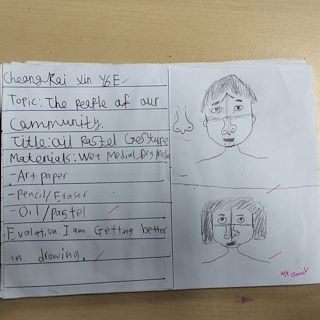 Cheong Kai Xin Y6E
Topic: The people of our
Community.
Title: Oil Pastel Gesture
Materials: Wet Media/Dry Media
-Art paper
-Pencil/Eraser
-Oil/Pastel
.Evaluation: I am Getting better
in drowing.